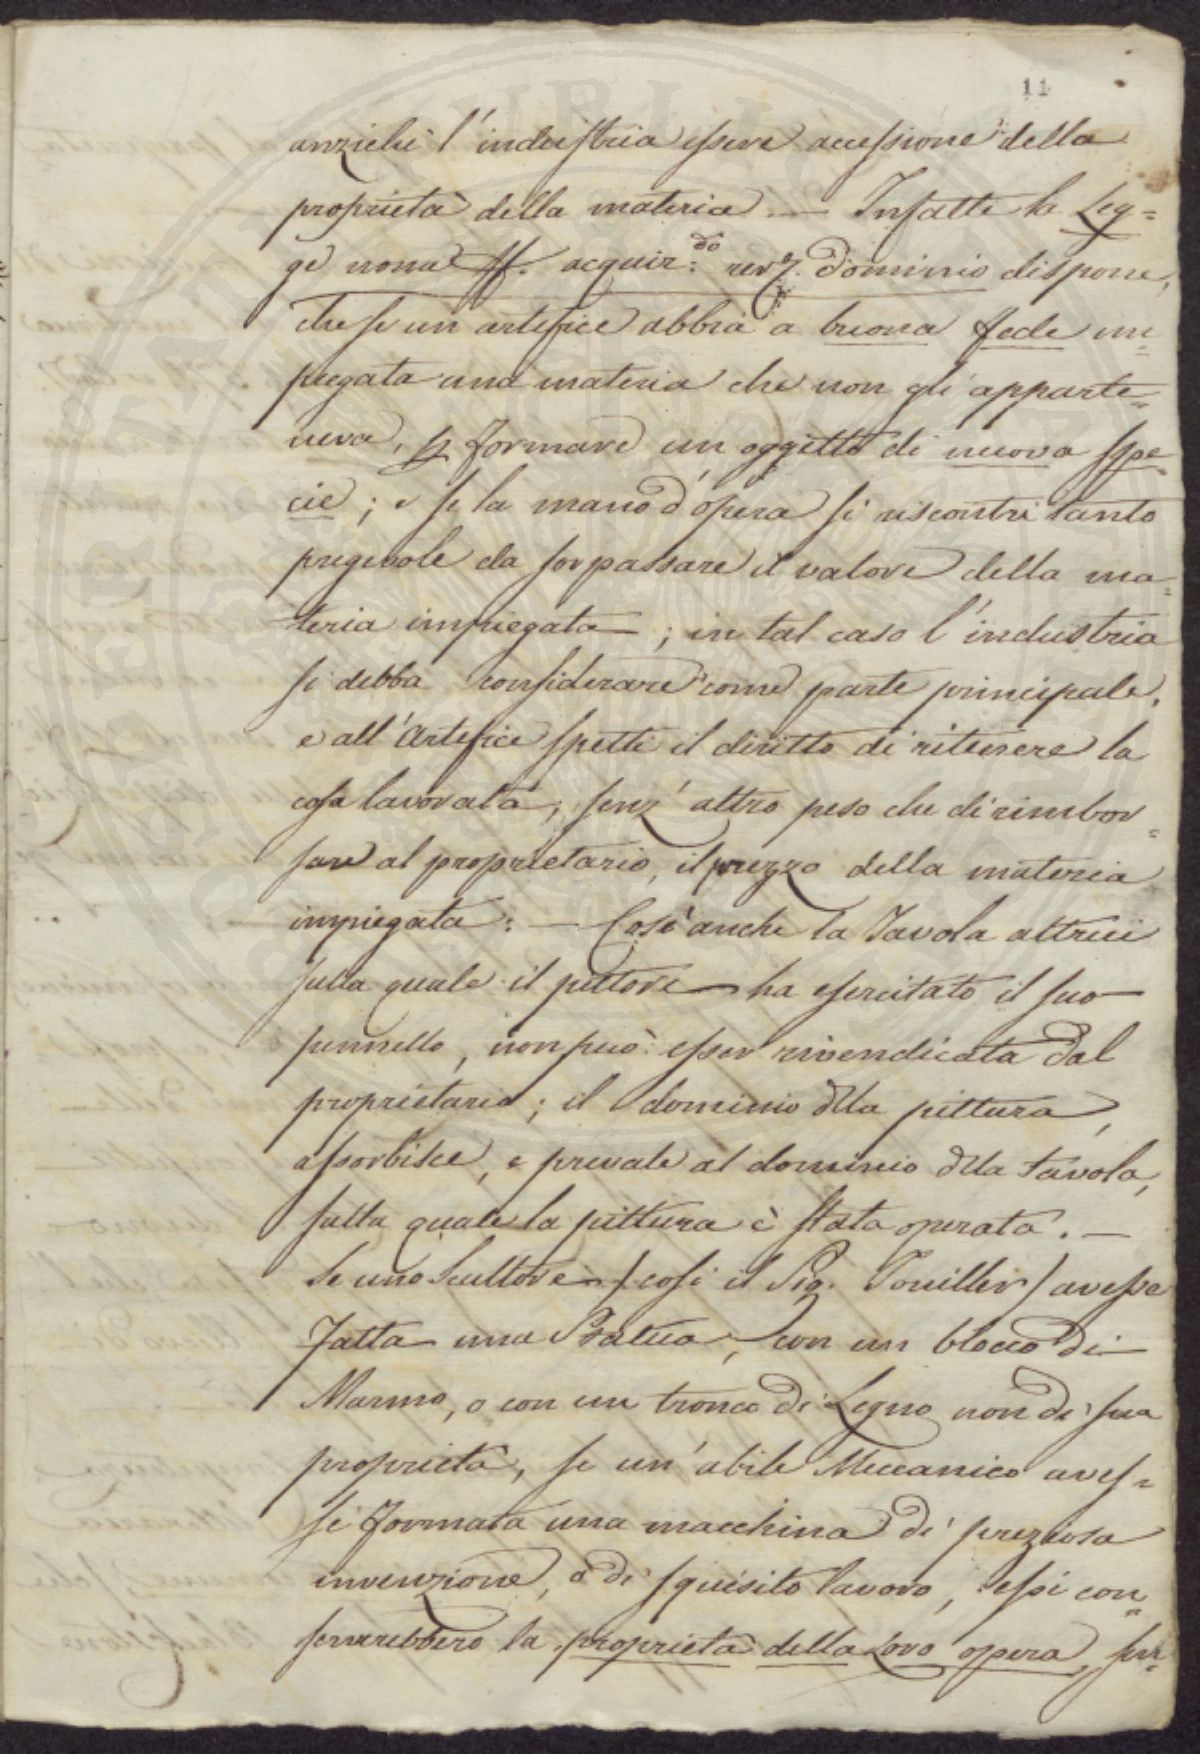 11
anzichè l'industria essere accessione della
proprietà della materia. — Infatti la Leg=
ge nona ff. acquir:do rer: dominio dispone,
che se un artefice abbia a buona fede im=
piegata una materia che non gli apparte=
neva, p formare un oggetto di nuova spe=
cie; e se la mano d'opera si riscontri tanto
pregevole da sorpassare il valore della ma=
teria impiegata; in tal caso l'industria
si debba considerare come parte principale,
e all'Artefice spetti il diritto di ritenere la
cosa lavorata, senz'altro peso che di rimbor=
sare al proprietario, il prezzo della materia
impiegata: — Così anche la Tavola altrui
sulla quale il pittore ha esercitato il suo
pennello, non può esser rivendicata dal
proprietario; il dominio dlla pittura,
assorbisce, e prevale al dominio dlla tavola,
sulla quale la pittura è stata operata. —
Se uno Scultore (così il Sig. Toullier) avesse
fatta una Statua, con un blocco di
Marmo, o con un tronco di Legno non di sua
proprietà, se un'abile Meccanico aves=
se formata una macchina di preziosa
invenzione, o di squisito lavoro, essi con=
serverebbero la proprietà della Loro opera, sen=